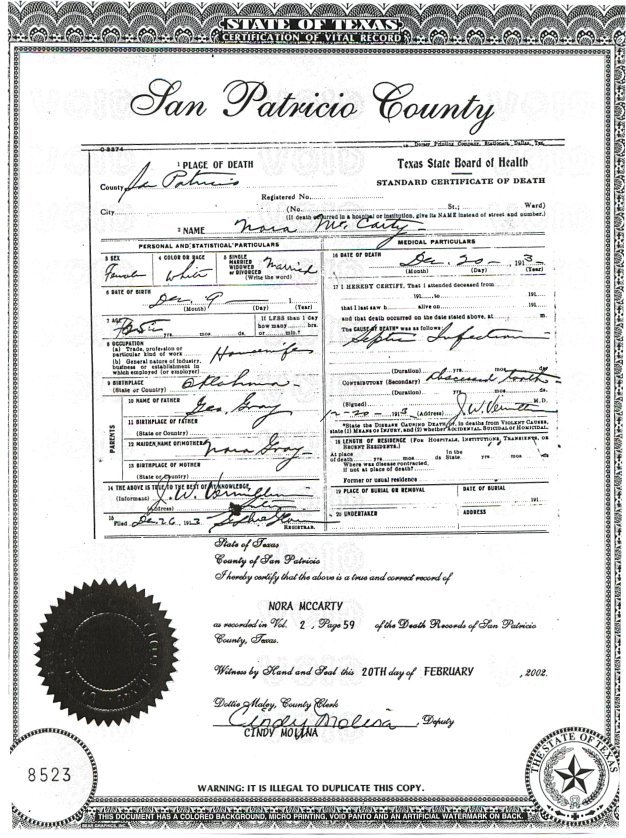 STATE OF TEXAS
CERTIFICATION OF VITAL RECORD
San Patricio County
C 3274
Dorsey Printing Company, Stationers, Dallas, Tex.
1 PLACE OF DEATH
Texas State Board of Health
County San Patricio
STANDARD CERTIFICATE OF DEATH
Registered No.
City (No. St.; Ward)
(If death occurred in a hospital or institution, give its NAME instead of street and number.)
2 NAME Nora McCarty
PERSONAL AND STATISTICAL PARTICULARS
3 SEX Female
4 COLOR OR RACE White
5 SINGLE MARRIED WIDOWED or DIVORCED (Write the word) Married
6 DATE OF BIRTH Dec. 9 1
(Month) (Day) (Year)
7 AGE yrs. mos. ds.
If LESS than 1 day how many hrs. or min.?
8 OCCUPATION
(a) Trade, profession or particular kind of work Housewife
(b) General nature of industry, business or establishment in which employed (or employer)
9 BIRTHPLACE
(State or Country) Oklahoma
PARENTS
10 NAME OF FATHER Geo. Gray
11 BIRTHPLACE OF FATHER
(State or Country)
12 MAIDEN NAME OF MOTHER Nora Gray
13 BIRTHPLACE OF MOTHER
(State or Country)
14 THE ABOVE IS TRUE TO THE BEST OF MY KNOWLEDGE,
(Informant) J. W.
(Address)
15
Filed Dec 26, 1913
REGISTRAR.
MEDICAL PARTICULARS
16 DATE OF DEATH Dec. 20 1913
(Month) (Day) (Year)
17 I HEREBY CERTIFY, That I attended deceased from
191 to 191
that I last saw h alive on 191
and that death occurred on the date stated above, at m.
The CAUSE OF DEATH* was as follows:
Septic Infection
(Duration) yrs. mos. ds.
CONTRIBUTORY (Secondary) tooth
(Duration) yrs. mos. ds.
(Signed) J. W. M.D.
12-20- 1913 (Address)
*State the DISEASE CAUSING DEATH, or, in deaths from VIOLENT CAUSES, state (1) MEANS OF INJURY, and (2) whether ACCIDENTAL, SUICIDAL or HOMICIDAL.
18 LENGTH OF RESIDENCE (FOR HOSPITALS, INSTITUTIONS, TRANSIENTS, OR RECENT RESIDENTS.)
At place of death yrs. mos. ds. In the State, yrs. mos. ds.
Where was disease contracted, if not at place of death?
Former or usual residence
19 PLACE OF BURIAL OR REMOVAL
DATE OF BURIAL
191
20 UNDERTAKER
ADDRESS
State of Texas
County of San Patricio
I hereby certify that the above is a true and correct record of
NORA MCCARTY
as recorded in Vol. 2, Page 59 of the Death Records of San Patricio
County, Texas.
Witness by Hand and Seal this 20TH day of FEBRUARY , 2002.
Dottie Maley, County Clerk
Cindy Molina , Deputy
CINDY MOLINA
8523
THE STATE OF TEXAS
WARNING: IT IS ILLEGAL TO DUPLICATE THIS COPY.
THIS DOCUMENT HAS A COLORED BACKGROUND, MICRO PRINTING, VOID PANTO AND AN ARTIFICIAL WATERMARK ON BACK.